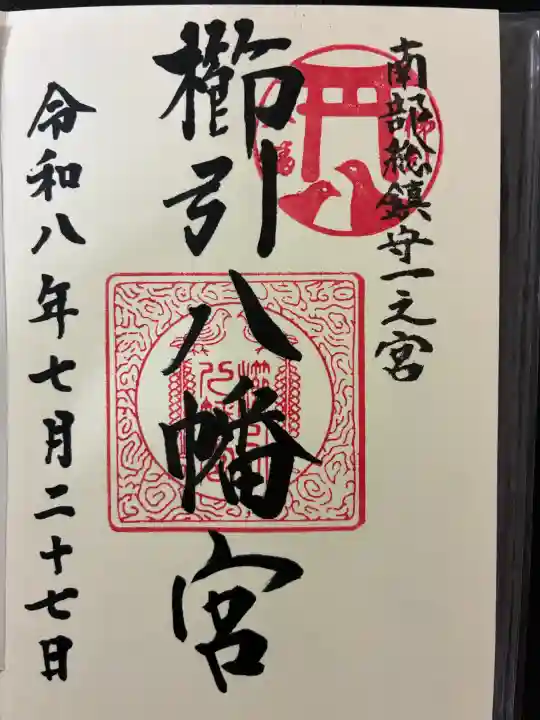 南部総鎮守一之宮
櫛引八幡宮
令和八年七月二十七日